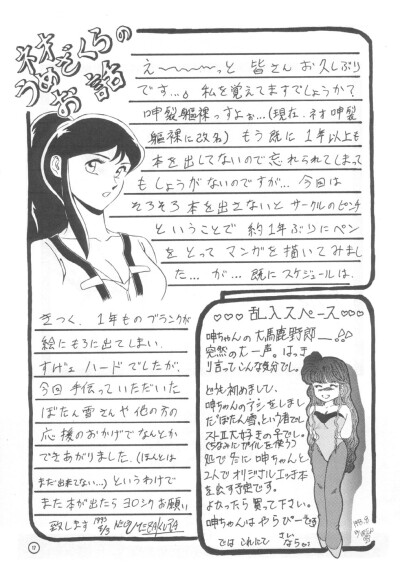 ネオ
うめざくらの
お話
え〜〜〜っと 皆さん お久しぶり
です…。私を覚えてますでしょうか?
呻裂躯裸っすよぉ…(現在、ネオ呻裂
躯裸に改名) もう既に 1年以上も
本を出してないので忘れられてしまって
もしょうがないのですが… 今回は
そろそろ 本を出さないと サークルのピンチ
ということで 約1年ぶりにペン
をとって マンガを描いてみまし
た… が… 既に スケジュールは、
きつく、1年ものブランクが
絵にもろに出てしまい、
すげェ ハードでしたが、
今回 手伝っていただいた
ぼたん雪さんや 他の方の
応援のおかげでなんとか
できあがりました。(ほんとは
まだ出来てない…) というわけで
また本が出たら ヨロシク お願い
致します 1993
17
♡♡♡ 乱入スペース ♡♡♡
呻ちゃんの 大馬鹿野郎
突然の大一声。はっき
り言ってこんな気分でし。
ども初めまして、
呻ちゃんのアシをしまし
た"ぼたん雪"という者でし
ストⅡ大好きの幸でし。
(ちなみにガイルを使う)
処で次に 呻ちゃんと
2人で オリジナルエッチ本
を出す予定です。
よかったら 買って下さい。
呻ちゃんは やらぴーです
では これにて さい
ならぁ